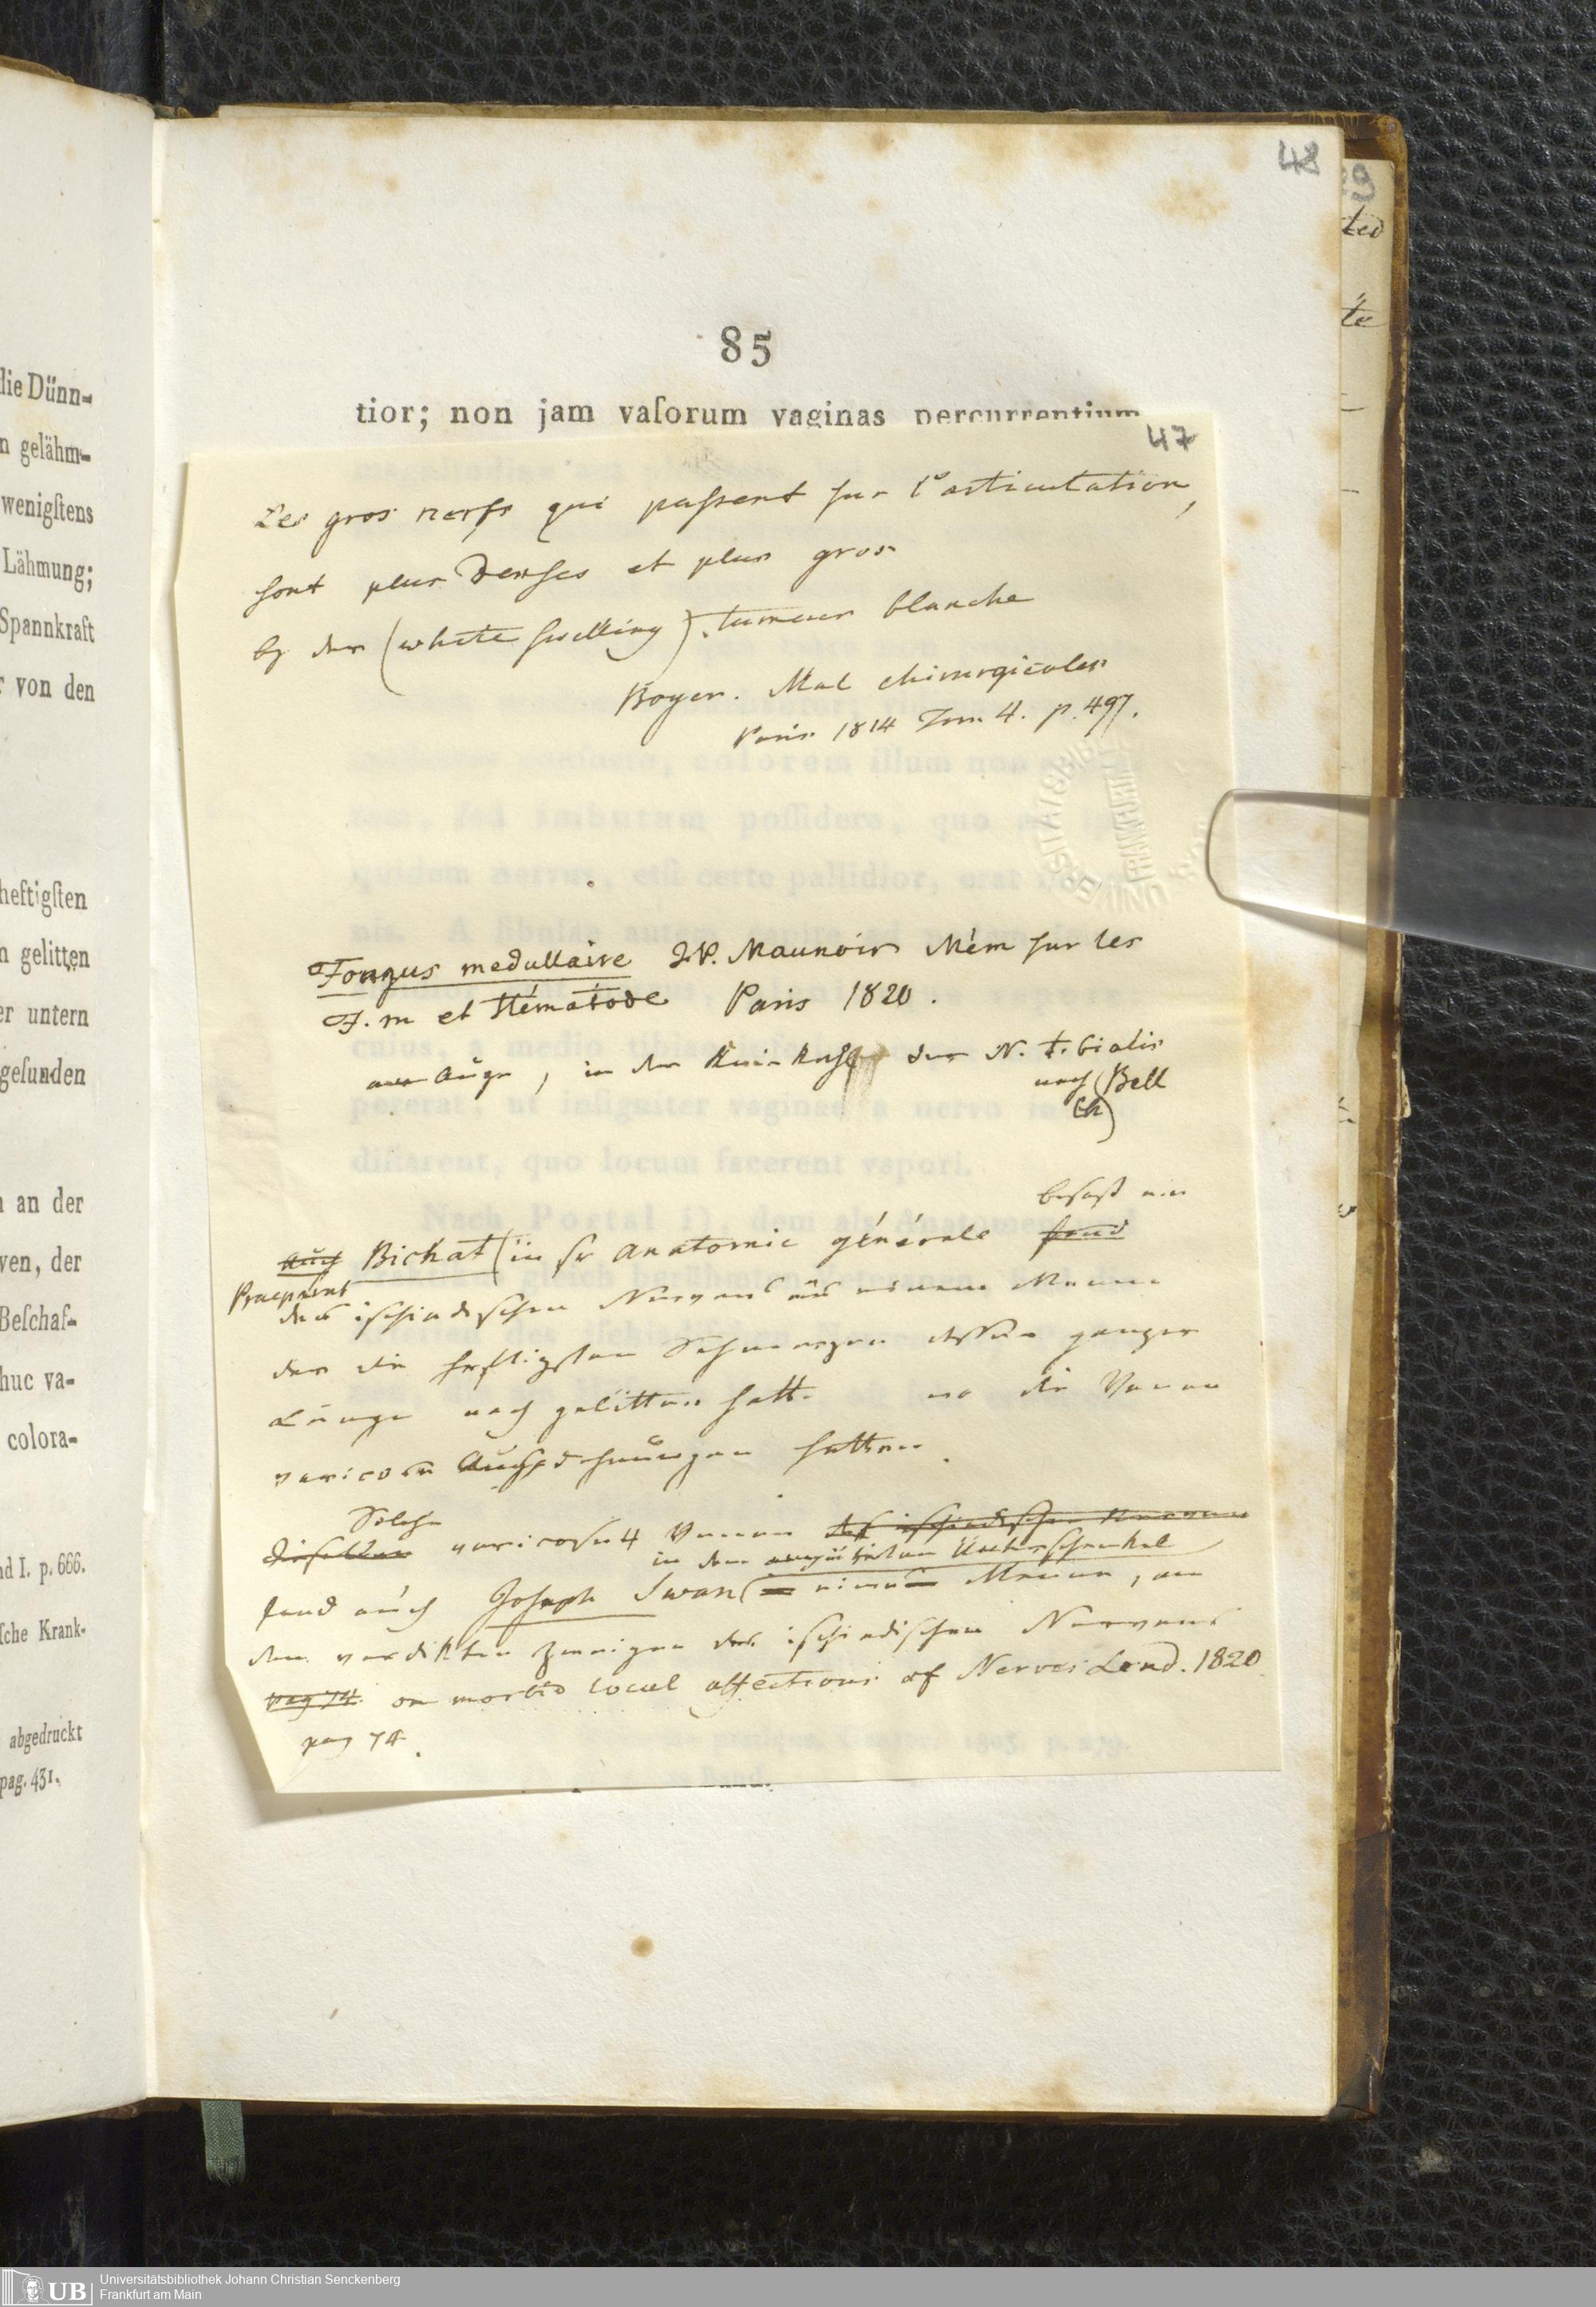 die Dünn-
n gelähm-
wenigſtens
Lähmung;
Spannkraft
r von den
heftigſten
n gelitten
er untern
geſunden
n an der
ven, der
Beſchaf-
huc va-
colora-
nd I. p. 666.
ſche Krank-
abgedruckt
pag. 431.
48
85
tior; non jam vaſorum vaginas percurrentium
47
Les gros nerfs qui paſsent ſur l'articulation,
ſont plus denſes et plus gros
by der (white ſwelling). tumeur blanche
Boyer. Mal chirurgicales
Paris 1814 Tom. 4. p. 497.
Fongus medullaire J.P. Maunoir Mém ſur les
F. m et Hématode Paris 1820.
Auge, in der des N. tibialis
nach (Bell
Ch)
beſaß ein
auch Bichat (in ſr anatomie générale fand
Praeparat
des iſchiadiſchen Nerven aus einem Manne
der die heftigſten Schmerzen deſſen ganzer
Länge nach gelitten hatte wo die Venen
varicoſe Ausdehnungen hatten.
Solche
dieſelben varicoſen Venen des iſchiadiſchen Nerven
in dem Unterſchenkel
fand auch Joſeph Swan eines Mannes, an
den verdikten Zweigen des iſchiadiſchen Nerven
pag 74. on morbid local affections of Nerves Lond. 1820.
pag 74.
ted
te
UB
Universitätsbibliothek Johann Christian Senckenberg
Frankfurt am Main